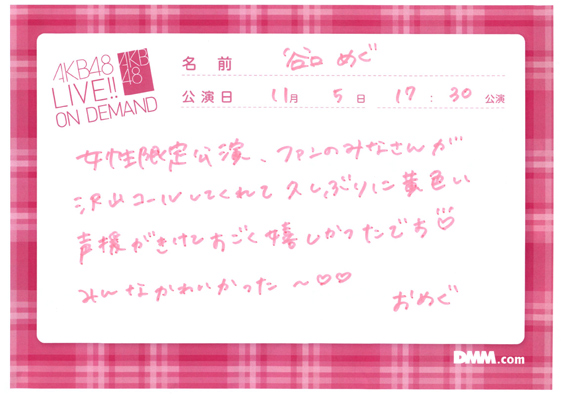 AKB48
LIVE!!
ON DEMAND
AKB
48
名前 谷口 めぐ
公演日 11月 5日 17:30 公演
女性限定公演、ファンのみなさんが
沢山コールしてくれて久しぶりに黄色い
声援がきけてすごく嬉しかったです♡
みんなかわいかった〜♡♡
おめぐ
DMM.com